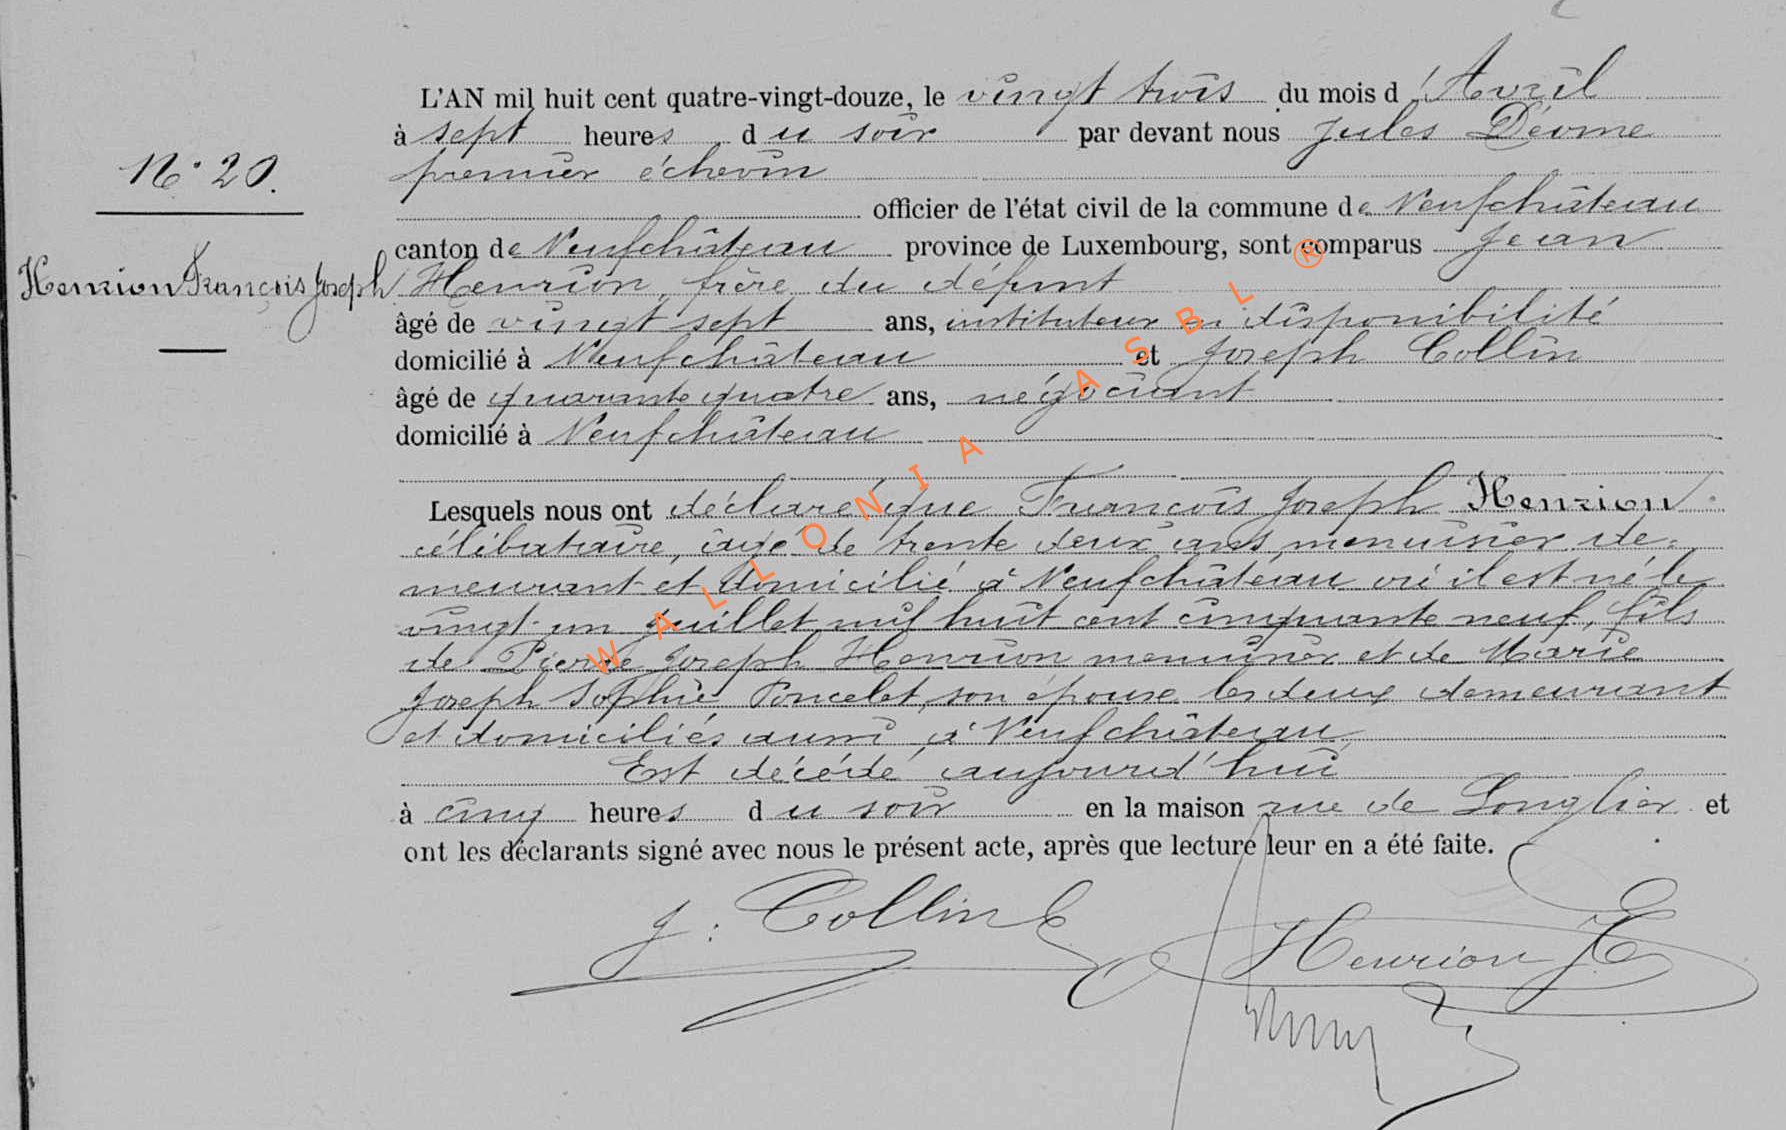 L'AN mil huit cent quatre-vingt-douze, le vingt trois du mois d'Avril
à sept heures du soir par devant nous Jules Déome
premier échevin
N° 20.
officier de l'état civil de la commune de Neufchâteau
canton de Neufchâteau province de Luxembourg, sont comparus Jean
Henrion François Joseph
Henrion, frère du défunt
âgé de vingt sept ans, instituteur en disponibilité
domicilié à Neufchâteau et Joseph Collin
âgé de quarante quatre ans, négociant
domicilié à Neufchâteau
Lesquels nous ont déclaré que François Joseph Henrion
célibataire, âgé de trente deux ans, menuisier, de-
meurant et domicilié à Neufchâteau où il est né le
vingt-un juillet mil huit cent cinquante neuf, fils
de Pierre Joseph Henrion menuisier et de Marie
Joseph Sophie Poncelet, son épouse les deux demeurant
et domiciliés aussi à Neufchâteau,
Est décédé aujourd'hui
à cinq heures du soir en la maison rue de Longlier et
ont les déclarants signé avec nous le présent acte, après que lecture leur en a été faite.
J: Collin
Henrion J
WALLONIA ASBL ®